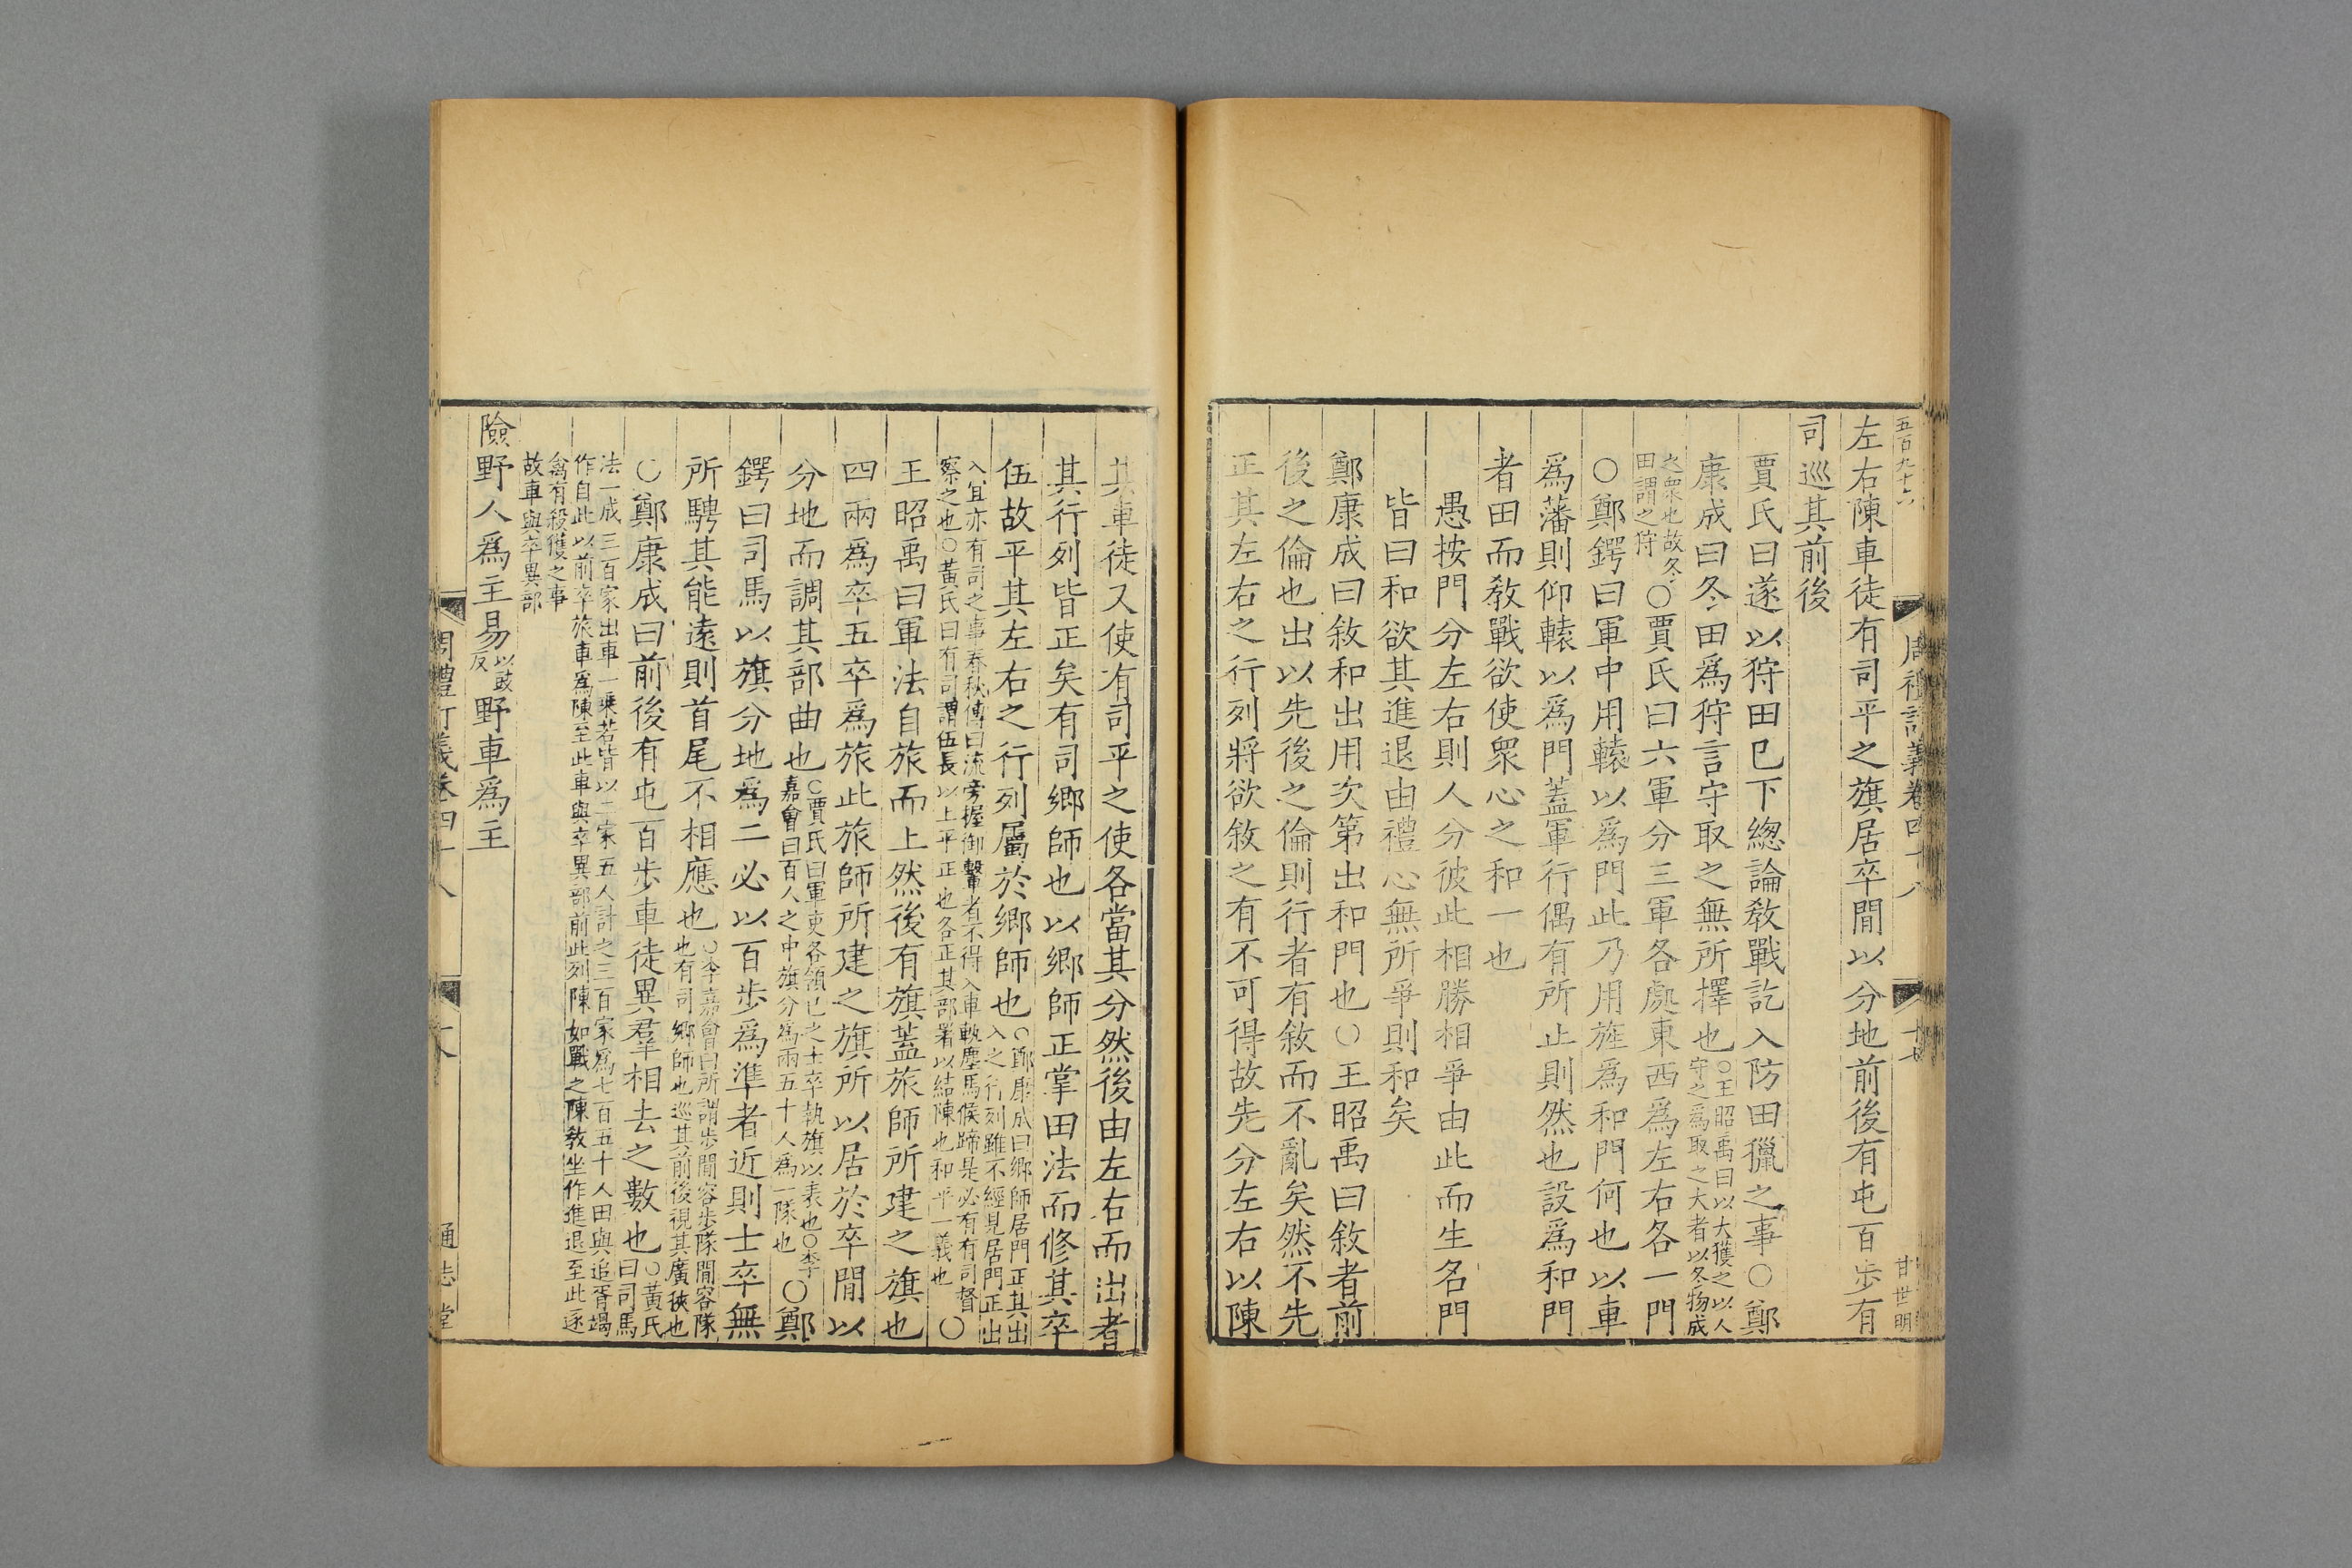 五百九十六
周禮訂義卷四十八
十七
甘世明
左右陳車徒有司平之旗居卒間以分地前後有屯百步有
司巡其前後
賈氏曰遂以狩田已下總論敎戰訖入防田獵之事○鄭
康成曰冬田爲狩言守取之無所擇也○王昭禹曰以大獲之以人
守之爲取之大者以冬物成
之衆也故冬
田謂之狩○賈氏曰六軍分三軍各處東西爲左右各一門
○鄭鍔曰軍中用轅以爲門此乃用旌爲和門何也以車
爲藩則仰轅以爲門蓋軍行偶有所止則然也設爲和門
者田而敎戰欲使衆心之和一也
愚按門分左右則人分彼此相勝相爭由此而生名門
皆曰和欲其進退由禮心無所爭則和矣
鄭康成曰敘和出用次第出和門也○王昭禹曰敘者前
後之倫也出以先後之倫則行者有敘而不亂矣然不先
正其左右之行列將欲敘之有不可得故先分左右以陳
其車徒又使有司平之使各當其分然後由左右而出者
其行列皆正矣有司鄉師也以鄉師正掌田法而修其卒
伍故平其左右之行列屬於鄉師也○鄭康成曰鄉師居門正其出
入之行列雖不經見居門正出
入宜亦有司之事春秋傳曰流旁握御轚者不得入車軌塵馬候蹄是必有有司督
察之也○黃氏曰有司謂伍長以上平正也各正其部署以結陳也和平一義也○
王昭禹曰軍法自旅而上然後有旗蓋旅師所建之旗也
四兩爲卒五卒爲旅此旅師所建之旗所以居於卒間以
分地而調其部曲也○賈氏曰軍吏各領已之士卒執旗以表也○李
嘉會曰百人之中旗分爲兩五十人爲一隊也○鄭
鍔曰司馬以旗分地爲二必以百步爲準者近則士卒無
所騁其能遠則首尾不相應也○李嘉會曰所謂步間容步隊間容隊
也有司鄉師也巡其前後視其廣狹也
○鄭康成曰前後有屯百步車徒異羣相去之數也○黃氏
曰司馬
法一成三百家出車一乘若皆以二家五人計之三百家爲七百五十人田與追胥竭
作自此以前卒旅車爲陳至此車與卒異部前此列陳如戰之陳敎坐作進退至此逐
禽有殺獲之事
故車與卒異部
險野人爲主易以豉
反野車爲主
周禮訂義卷四十八
十八
通志堂